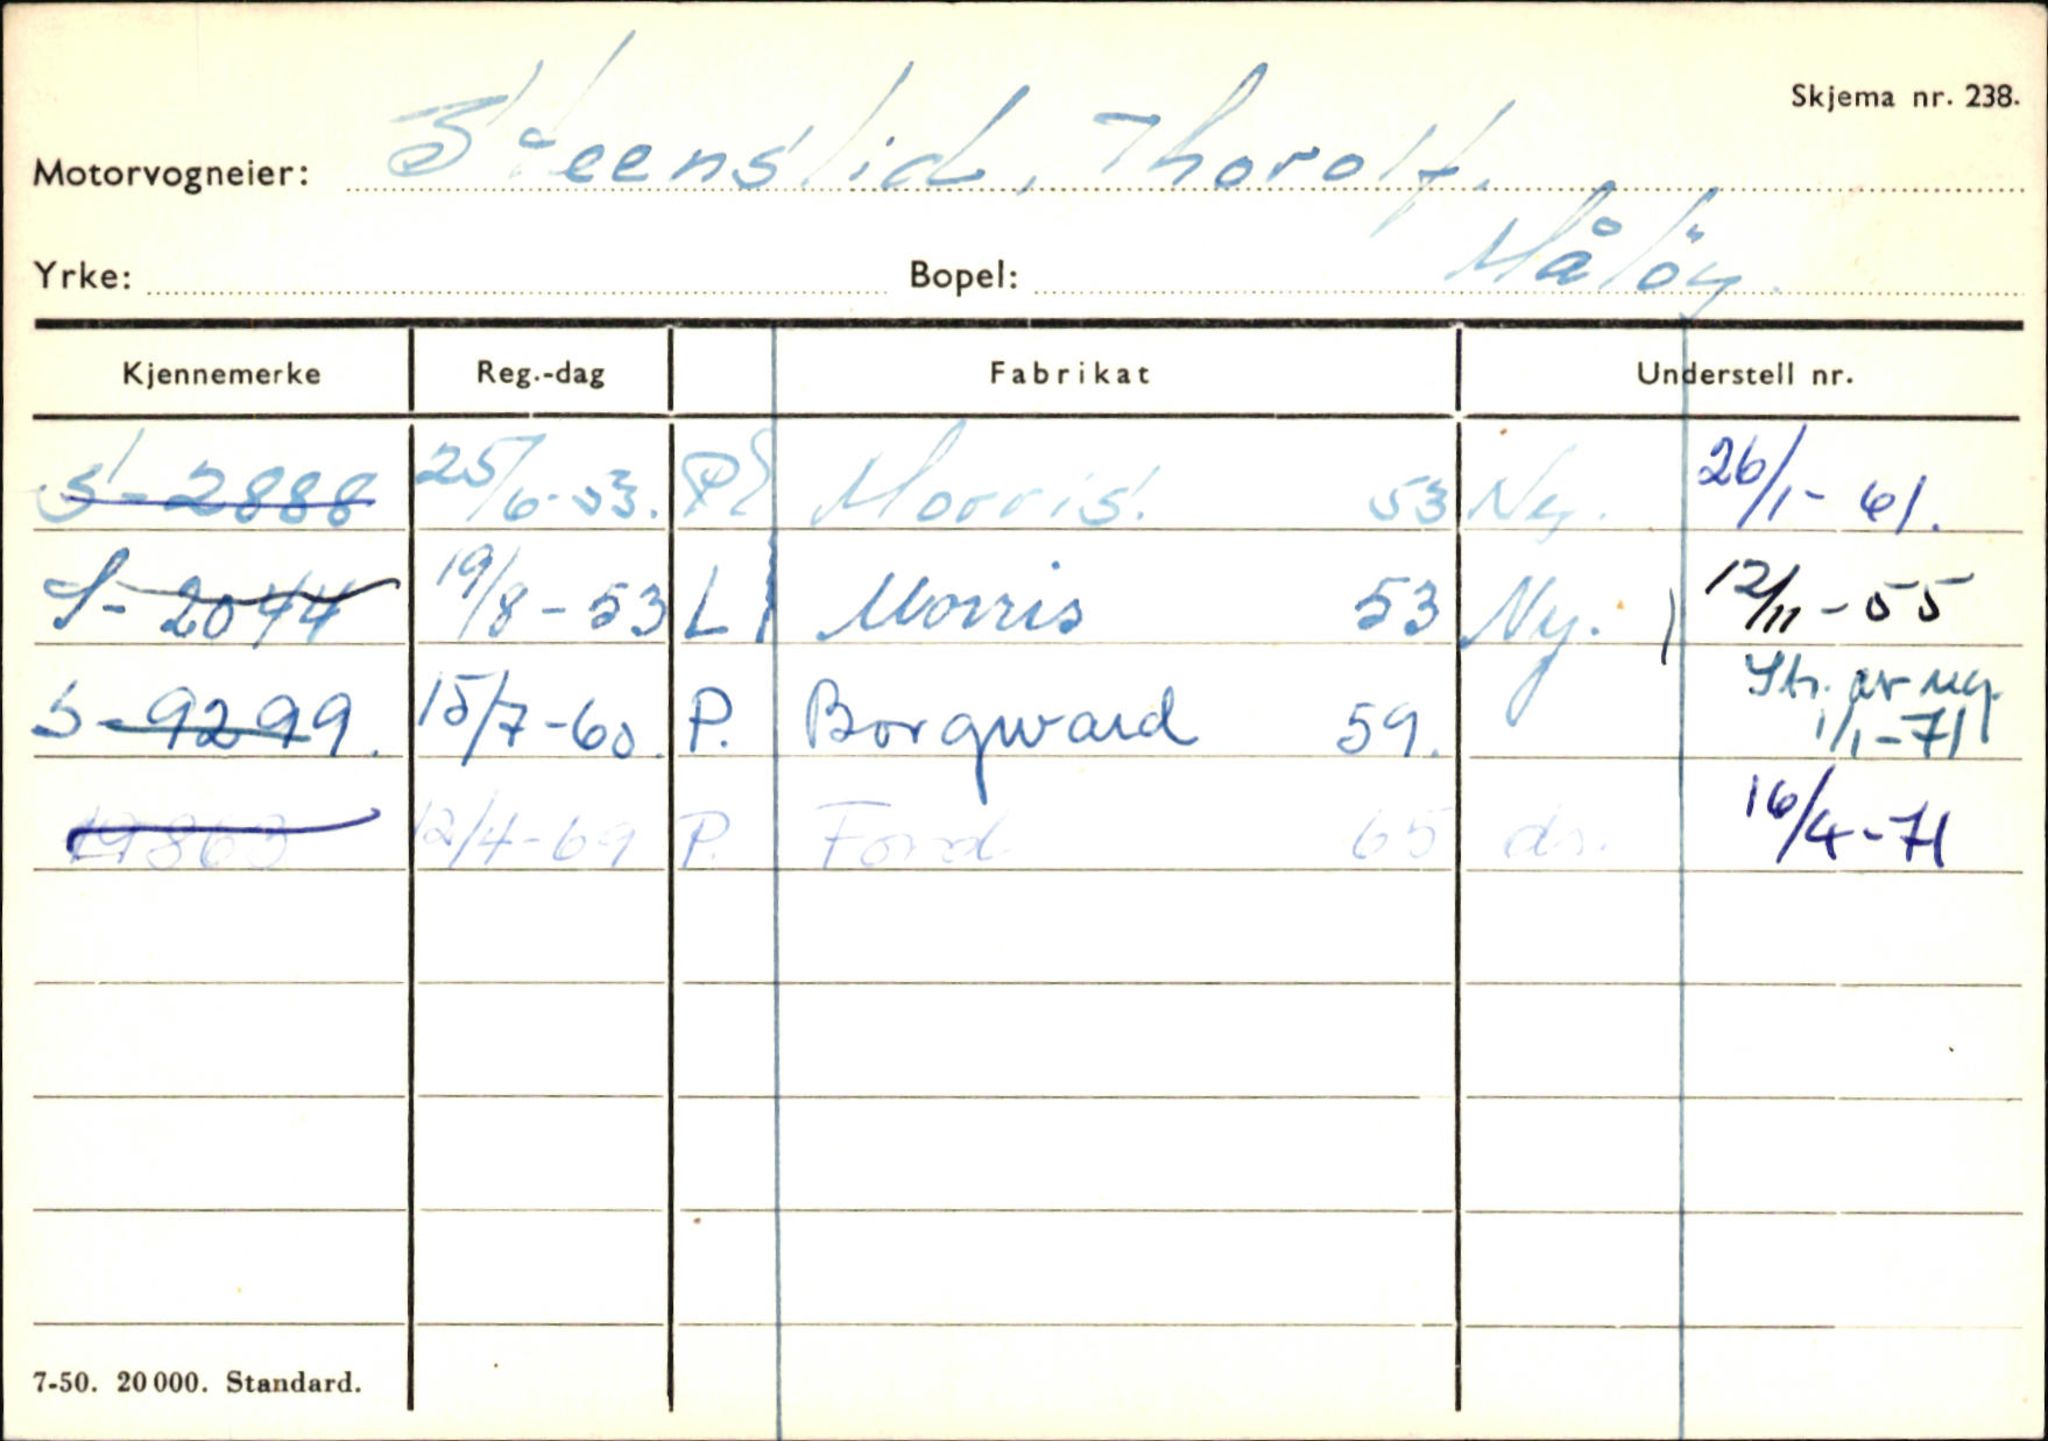 Skjema nr. 238.
Motorvogneier: Steenslid, Thorolf.
Yrke: Bopel: Måløy.
Kjennemerke Reg.-dag Fabrikat Understell nr.
S-2888 25/6-53. P Morris. 53 Ny. 26/1-61.
S-2044 19/8-53 L Morris 53 Ny. 12/11-55
S-9299. 15/7-60. P. Borgward 59. Str. av reg. 1/1-71
12/4-69 P. Ford 65 16/4-71
7-50. 20 000. Standard.